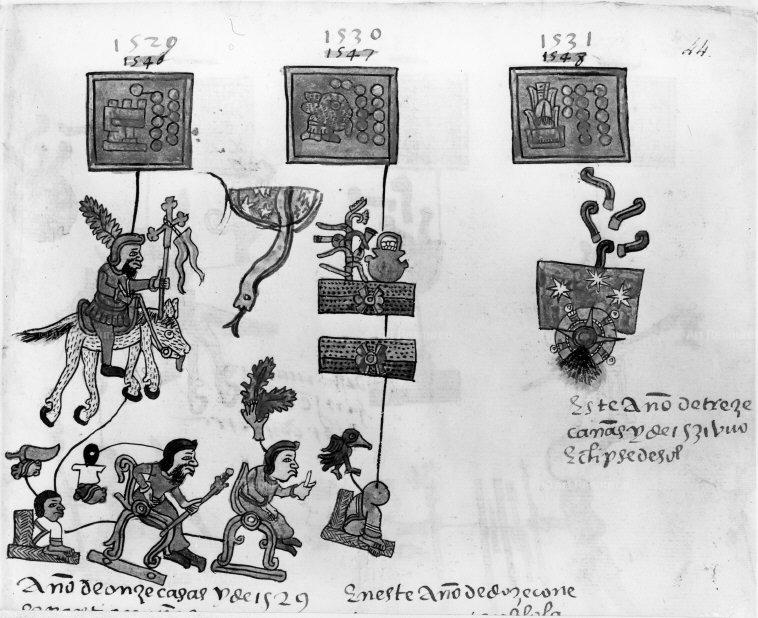 1529
1546
1530
1547
1531
1548
44.
Este Año de treze
cañas y de 1531 vuo
Eclipse de sol
Año de onze casas y de 1529
En este Año de doze cone